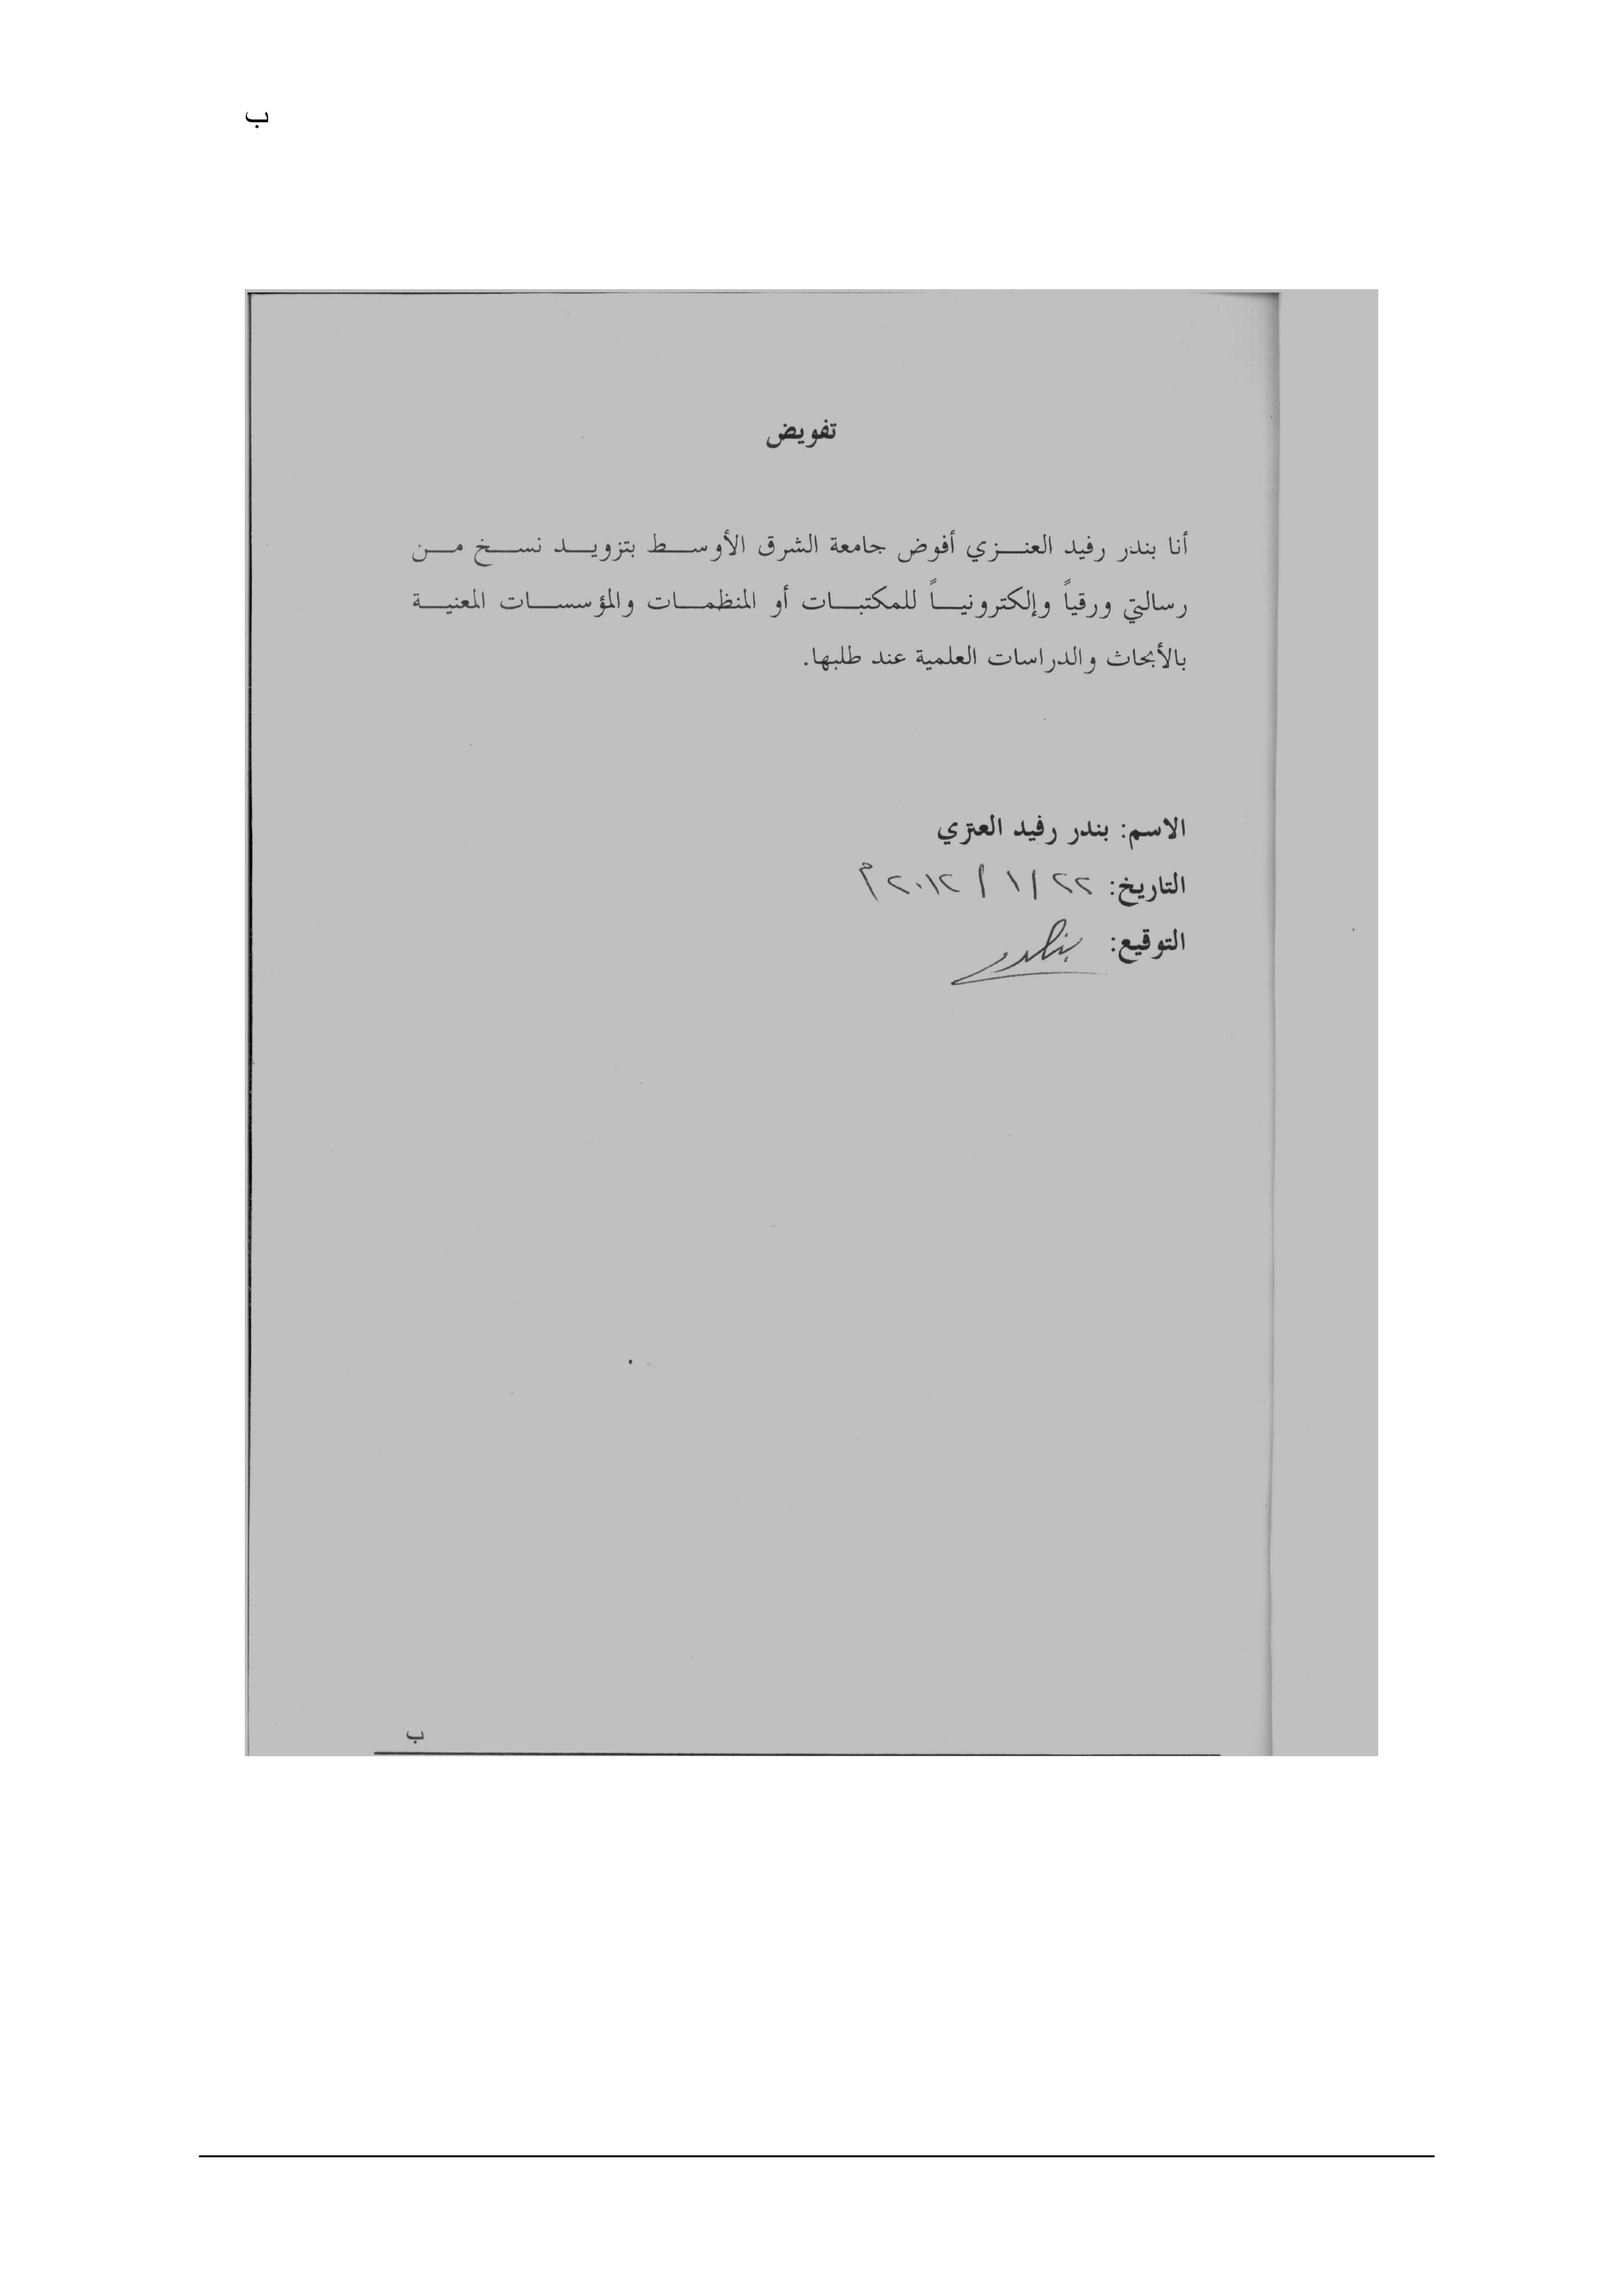 ب
تفويض
أنا بندر رفيد العنزي أفوض جامعة الشرق الأوسط بتزويد نسخ من
رسالتي ورقياً وإلكترونياً للمكتبات أو المنظمات والمؤسسات المعنية
بالأبحاث والدراسات العلمية عند طلبها.
الاسم: بندر رفيد العنزي
التاريخ: ٢٢ / ١ / ٢٠١٢ م
التوقيع: بندر
ب